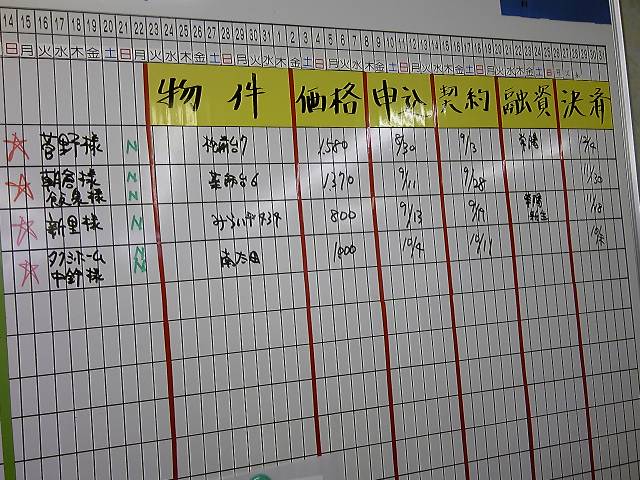 14 15 16 17 18 19 20 21 22 23 24 25 26 27 28 29 30 31 1 2 3 4 5 6 7 8 9 10 11 12 13 14 15 16 17 18 19 20 21 22 23 24 25 26 27 28 29 30 31
日月火水木金土日月火水木金土日月火水木金土日月火水木金土日月火水木金土日月火水木金土日
物件 価格 申込 契約 融資 決済
菅野様 N 1580 8/30 9/3 常陽 12/4
朝倉様 N 1370 9/11 9/28 11/30
飯泉様 N 常陽
新里様 N 800 9/13 11/18
タクミホーム N 南太田 1000 10/4 10/14
中鉢様 N